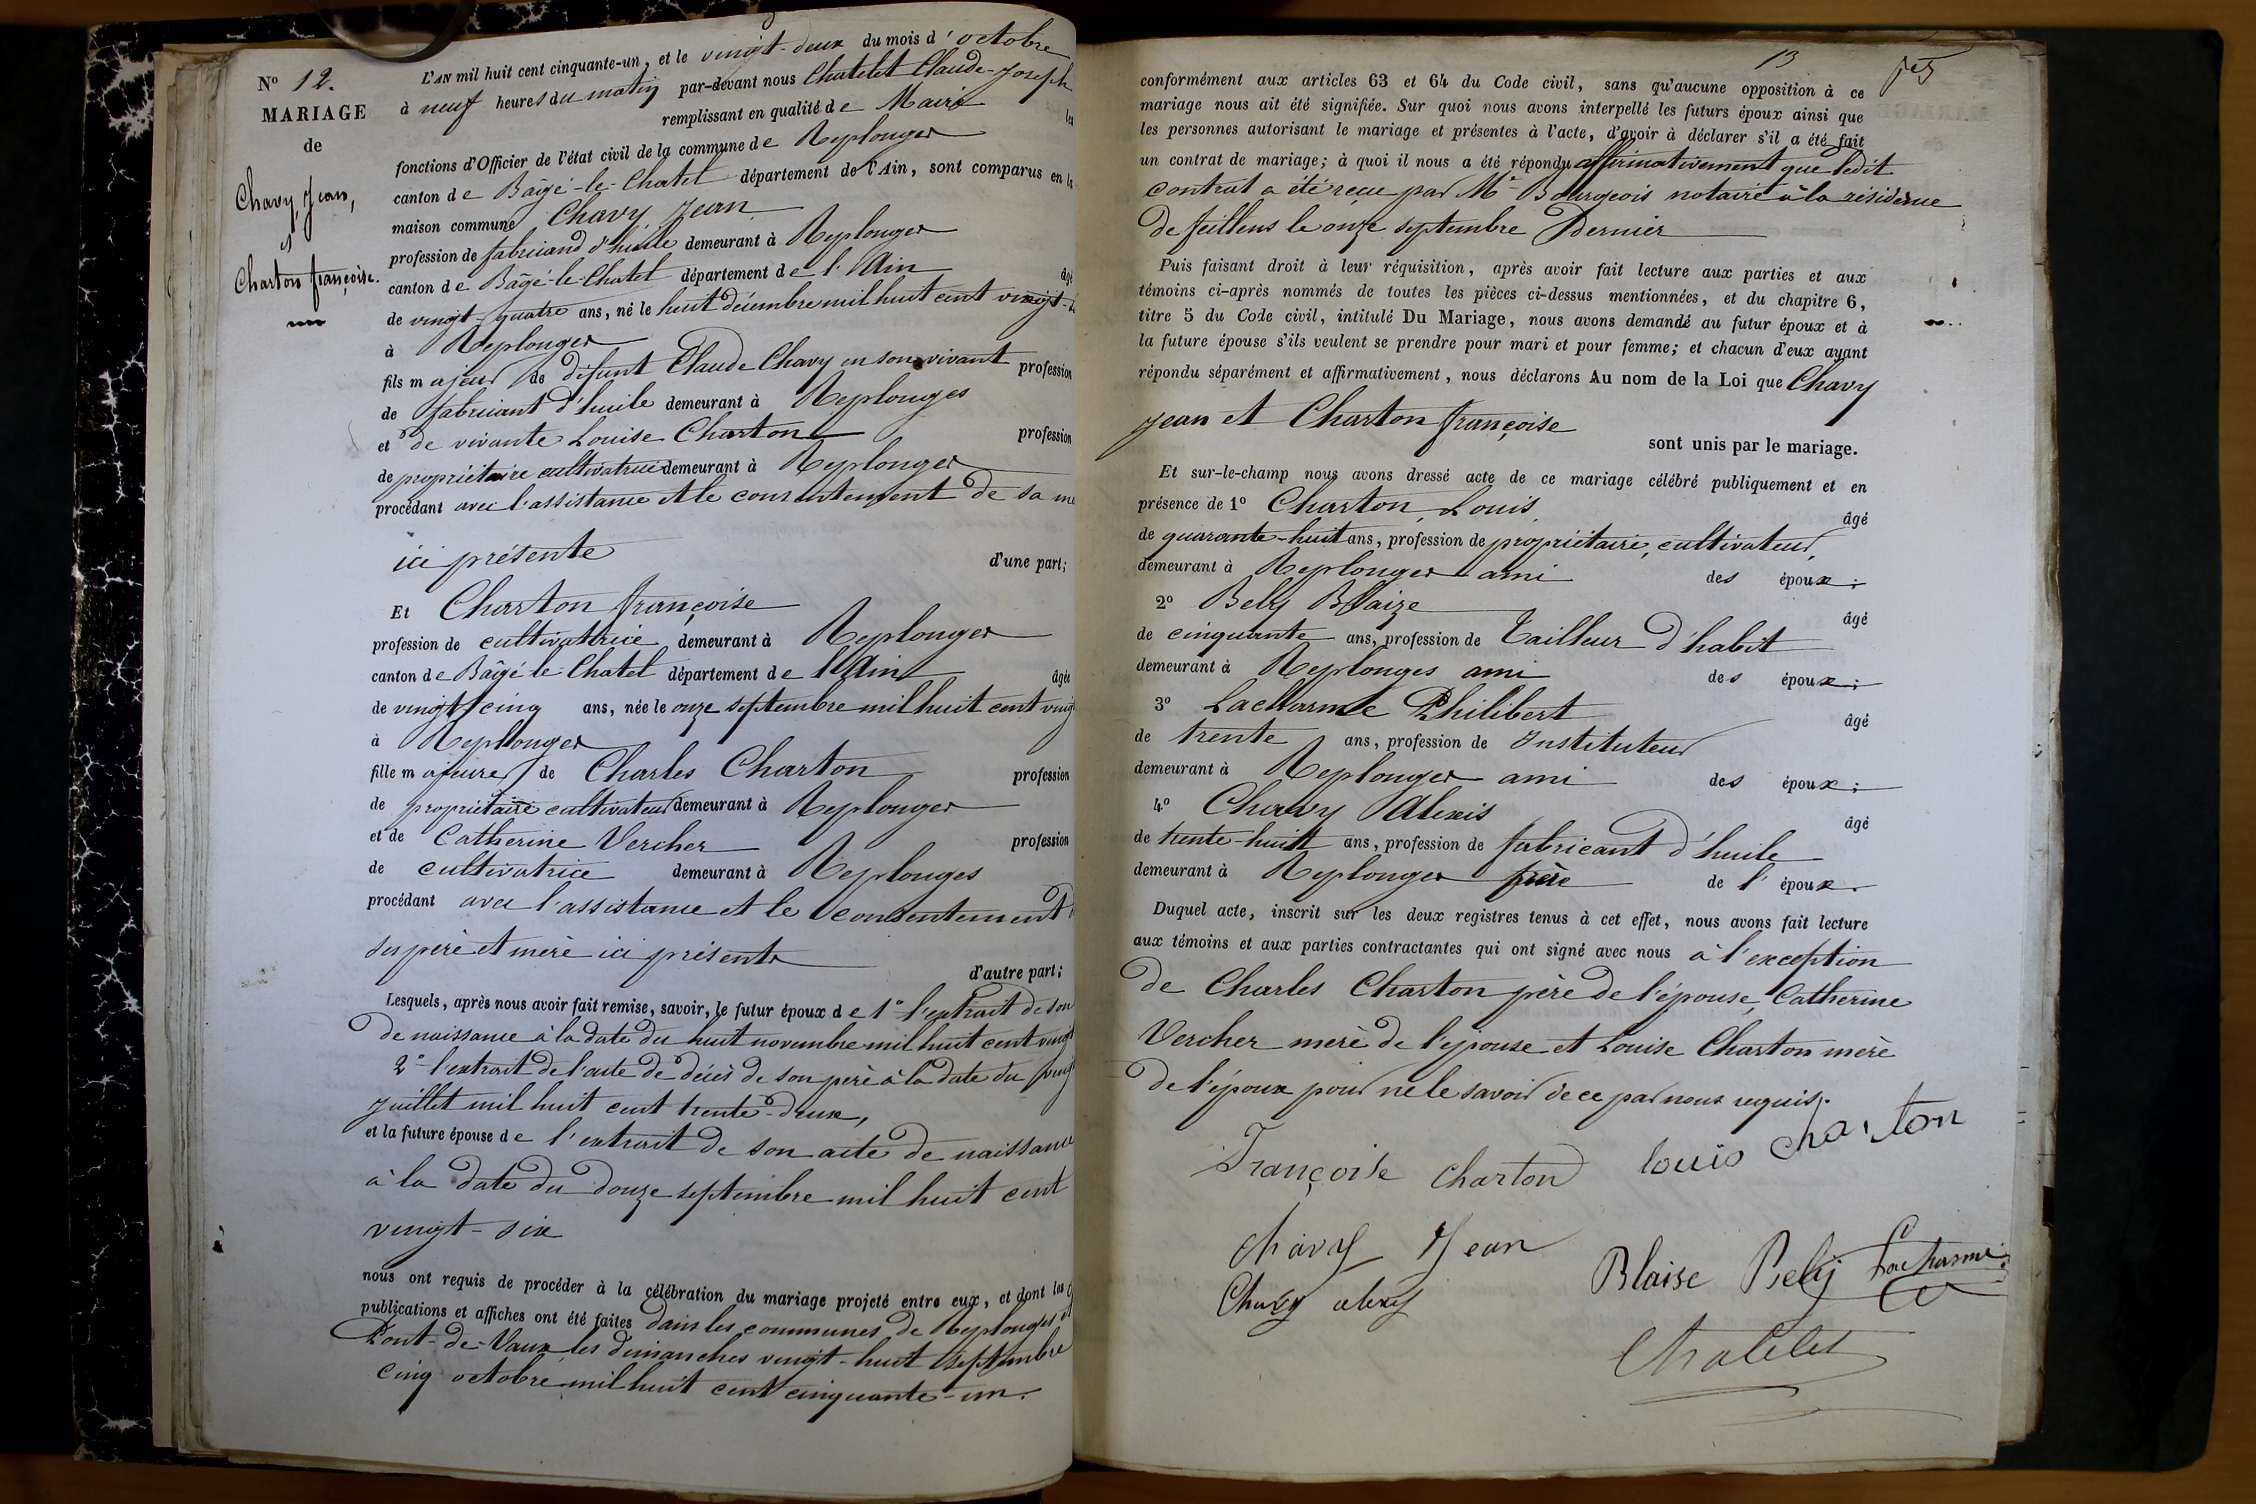 Nº 12.
MARIAGE
de
Chavy, Jean,
et
Charton françoise.
L'AN mil huit cent cinquante-un, et le vingt-deux du mois d'octobre
à neuf heures du matin par-devant nous Chatelet Claude-Joseph
remplissant en qualité de Maire les
fonctions d'Officier de l'état civil de la commune de Replonges
canton de Bâgé-le-Chatel département de l'Ain, sont comparus en la
maison commune Chavy Jean
profession de fabricand d'huile demeurant à Replonges
canton de Bâgé-le-Chatel département de l'Ain âgé
de vingt-quatre ans, né le huit décembre mil huit cent vingt-
à Replonges
fils majeur de défunt Claude Chavy en son vivant profession
de fabricant d'huile demeurant à Replonges
et de vivante Louise Charton profession
de propriétaire cultivatrice demeurant à Replonges
procédant avec l'assistance et le consentement de sa
ici présente d'une part;
Et Charton françoise
profession de cultivatrice demeurant à Replonges
canton de Bâgé-le-Chatel département de l'Ain âgée
de vingt cinq ans, née le onze septembre mil huit cent
à Replonges
fille majeure de Charles Charton profession
de propriétaire cultivateur demeurant à Replonges
et de Catherine Vercher profession
de cultivatrice demeurant à Replonges
procédant avec l'assistance et le consentement
ses père et mère ici présents d'autre part;
Lesquels, après nous avoir fait remise, savoir, le futur époux de 1º l'extrait de son
de naissance à la date du huit novembre mil huit cent
2º l'extrait de l'acte de décès de son père à la date du
juillet mil huit cent trente-deux,
et la future épouse de l'extrait de son acte de naissance
à la date du douze septembre mil huit cent
vingt-six
nous ont requis de procéder à la célébration du mariage projeté entre eux, et dont les
publications et affiches ont été faites dans les communes de Replonges et
Pont-de-Vaux les dimanches vingt-huit septembre
cinq octobre mil huit cent cinquante-un.
13
conformément aux articles 63 et 64 du Code civil, sans qu'aucune opposition à ce
mariage nous ait été signifiée. Sur quoi nous avons interpellé les futurs époux ainsi que
les personnes autorisant le mariage et présentes à l'acte, d'avoir à déclarer s'il a été fait
un contrat de mariage; à quoi il nous a été répondu affirmativement que ledit
contrat a été reçu par Me Bourgeois notaire à la résidence
de feillens le onze septembre Dernier
Puis faisant droit à leur réquisition, après avoir fait lecture aux parties et aux
témoins ci-après nommés de toutes les pièces ci-dessus mentionnées, et du chapitre 6,
titre 5 du Code civil, intitulé Du Mariage, nous avons demandé au futur époux et à
la future épouse s'ils veulent se prendre pour mari et pour femme; et chacun d'eux ayant
répondu séparément et affirmativement, nous déclarons Au nom de la Loi que Chavy
jean et Charton françoise
sont unis par le mariage.
Et sur-le-champ nous avons dressé acte de ce mariage célébré publiquement et en
présence de 1º Charton, Louis âgé
de quarante-huit ans, profession de propriétaire, cultivateur,
demeurant à Replonges ami des époux;
2º Bely Blaize âgé
de cinquante ans, profession de Tailleur d'habit
demeurant à Replonges ami des époux;
3º Lacharme Philibert âgé
de trente ans, profession de Instituteur
demeurant à Replonges ami des époux;
4º Chavy Alexis âgé
de trente-huit ans, profession de fabricant d'huile
demeurant à Replonges frère de l'époux.
Duquel acte, inscrit sur les deux registres tenus à cet effet, nous avons fait lecture
aux témoins et aux parties contractantes qui ont signé avec nous à l'exception
de Charles Charton père de l'épouse, Catherine
Vercher mère de l'épouse et Louise Charton mère
de l'époux pour ne le savoir de ce par nous requis.
Françoise charton louis charton
chavy Jean
Blaise Bely Lacharme
Chavy alexis
Chatelet